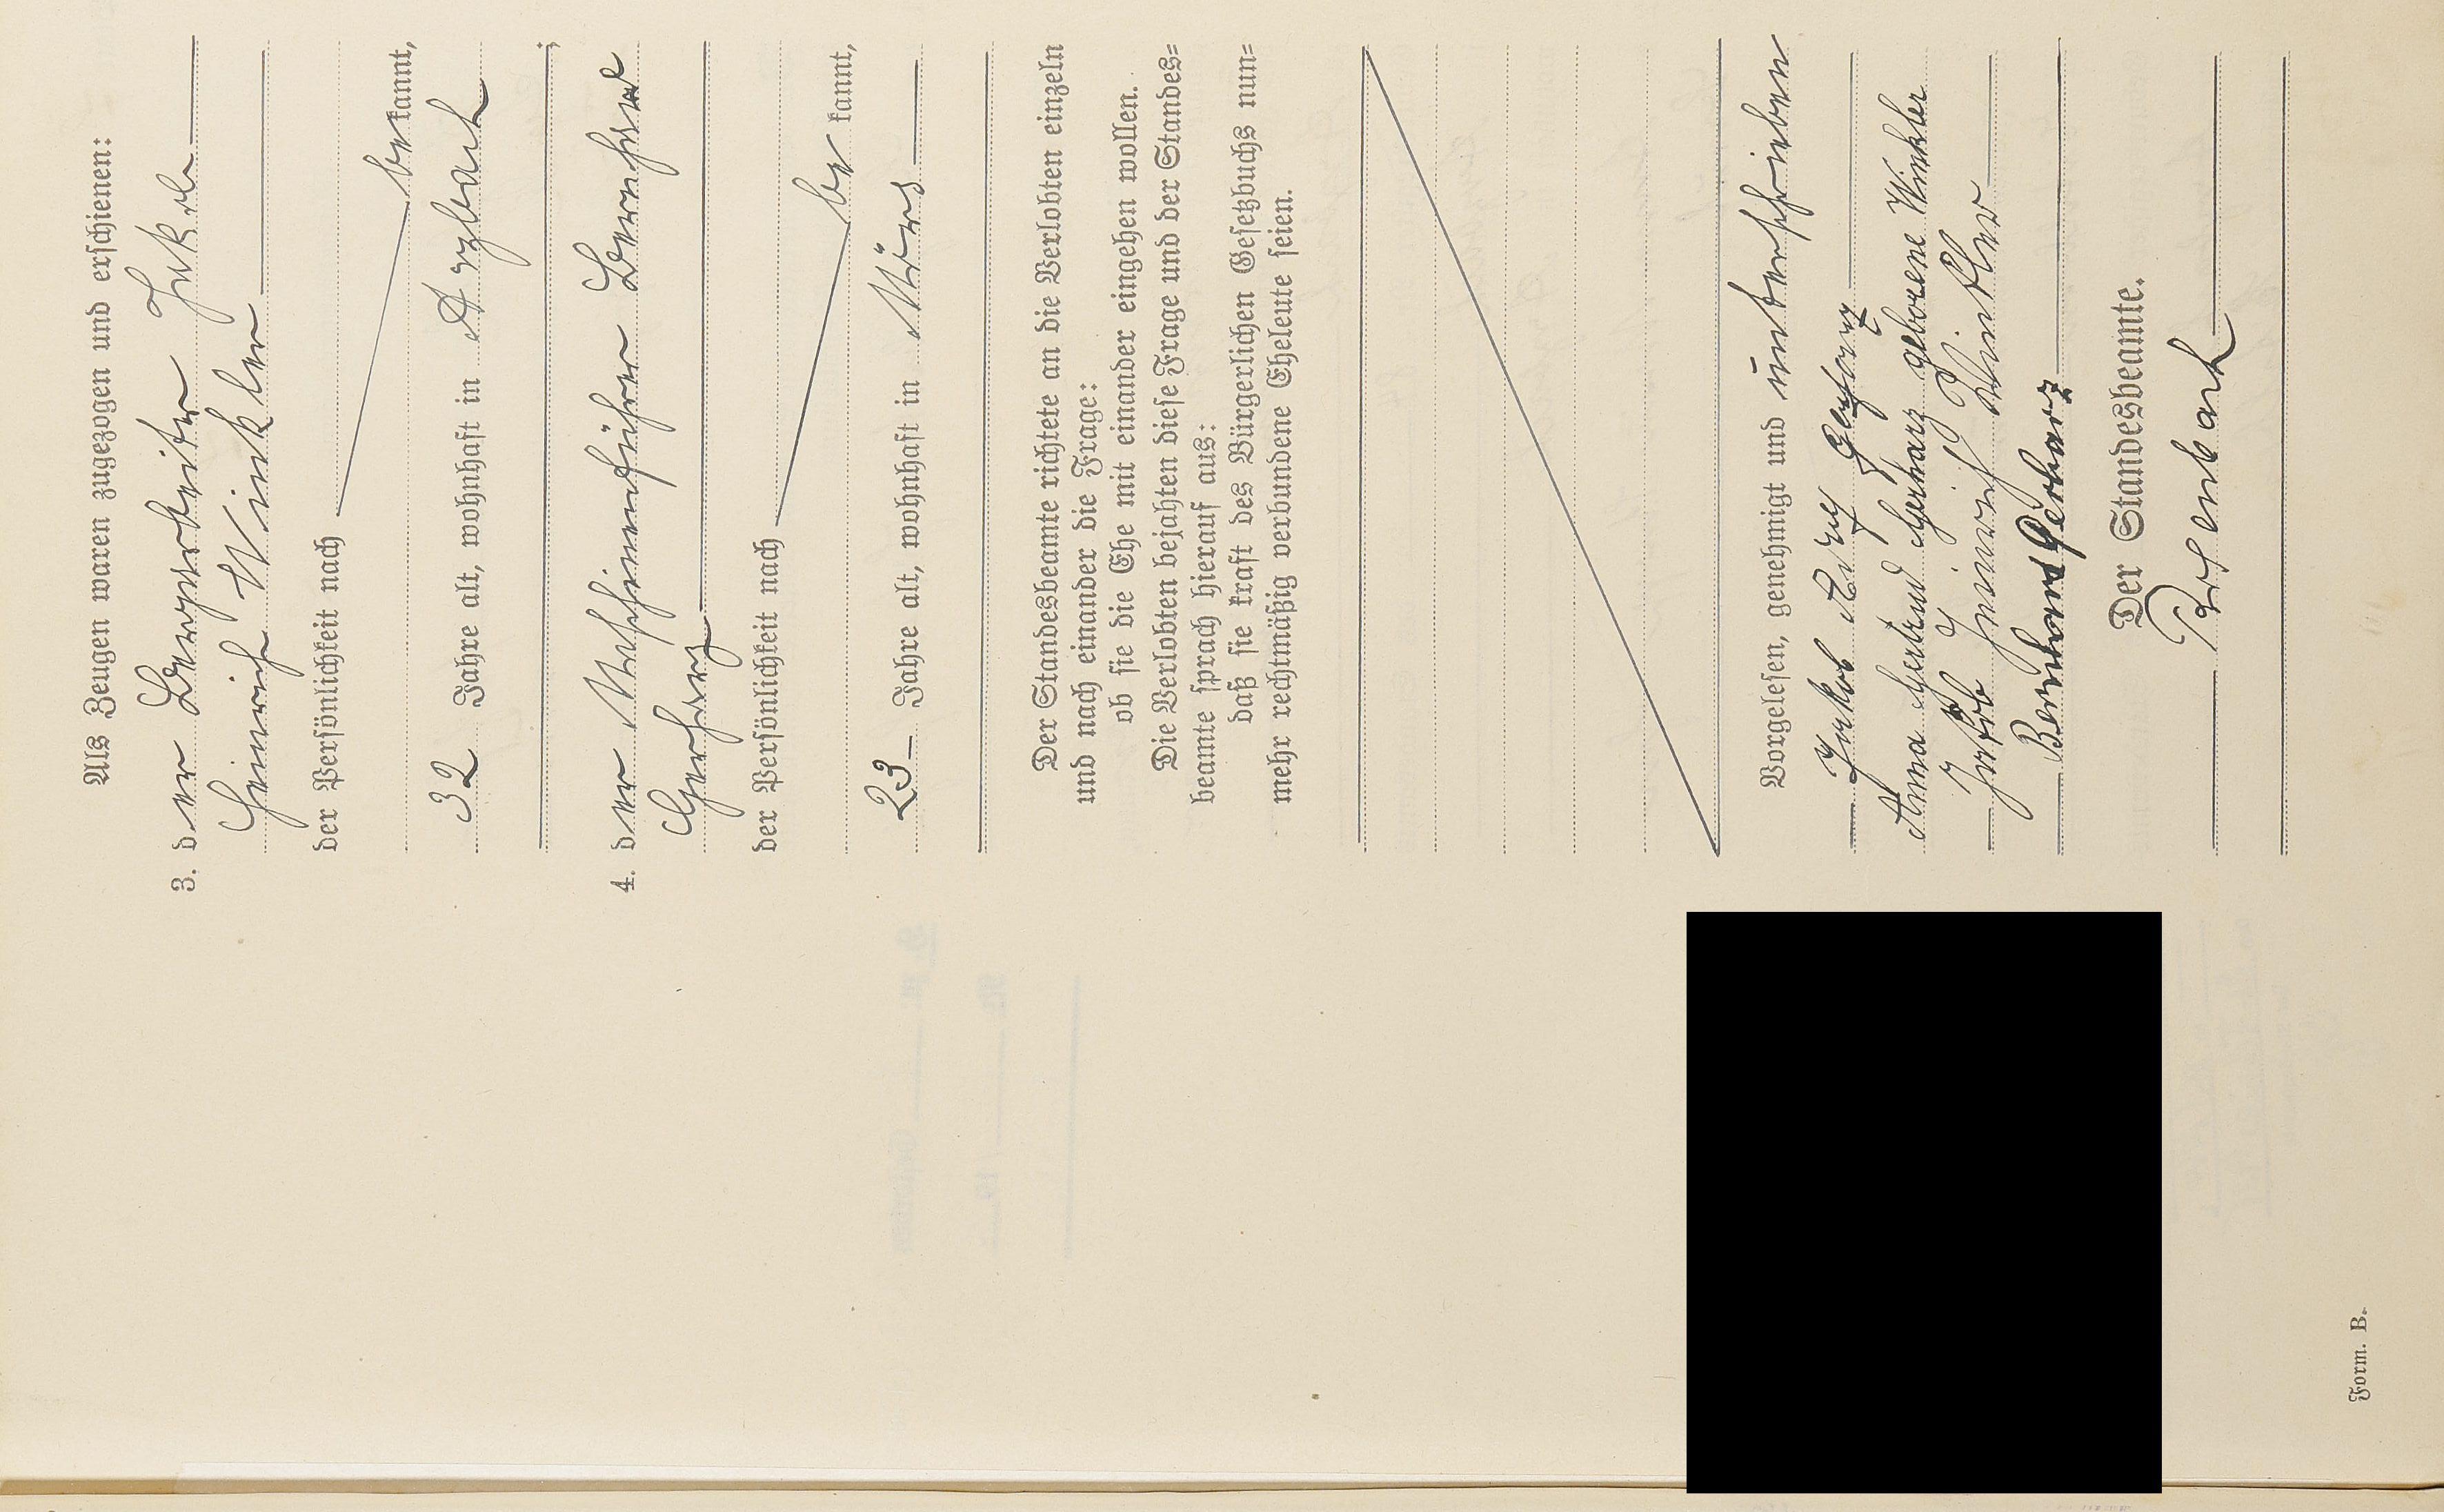 Als Zeugen waren zugezogen und erschienen:
3. der Bergarbeiter Jakob
Heinrich Winkler
der Persönlichkeit nach
bekannt,
32 Jahre alt, wohnhaft in Arzbach
;
4. der Maschinenführer Bernhard
Gerharz
der Persönlichkeit nach
bekannt,
23 Jahre alt, wohnhaft in
Der Standesbeamte richtete an die Verlobten einzeln
und nach einander die Frage:
ob sie die Ehe mit einander eingehen wollen.
Die Verlobten bejahten diese Frage und der Standes=
beamte sprach hierauf aus:
daß sie kraft des Bürgerlichen Gesetzbuchs nun=
mehr rechtmäßig verbundene Eheleute seien.
Vorgelesen, genehmigt und unterschrieben
Jakob Gerharz
Anna Gertrud Gerharz geborene Winkler
Jakob Heinrich Winkler
Bernhard Gerharz
Der Standesbeamte.
Form. B.